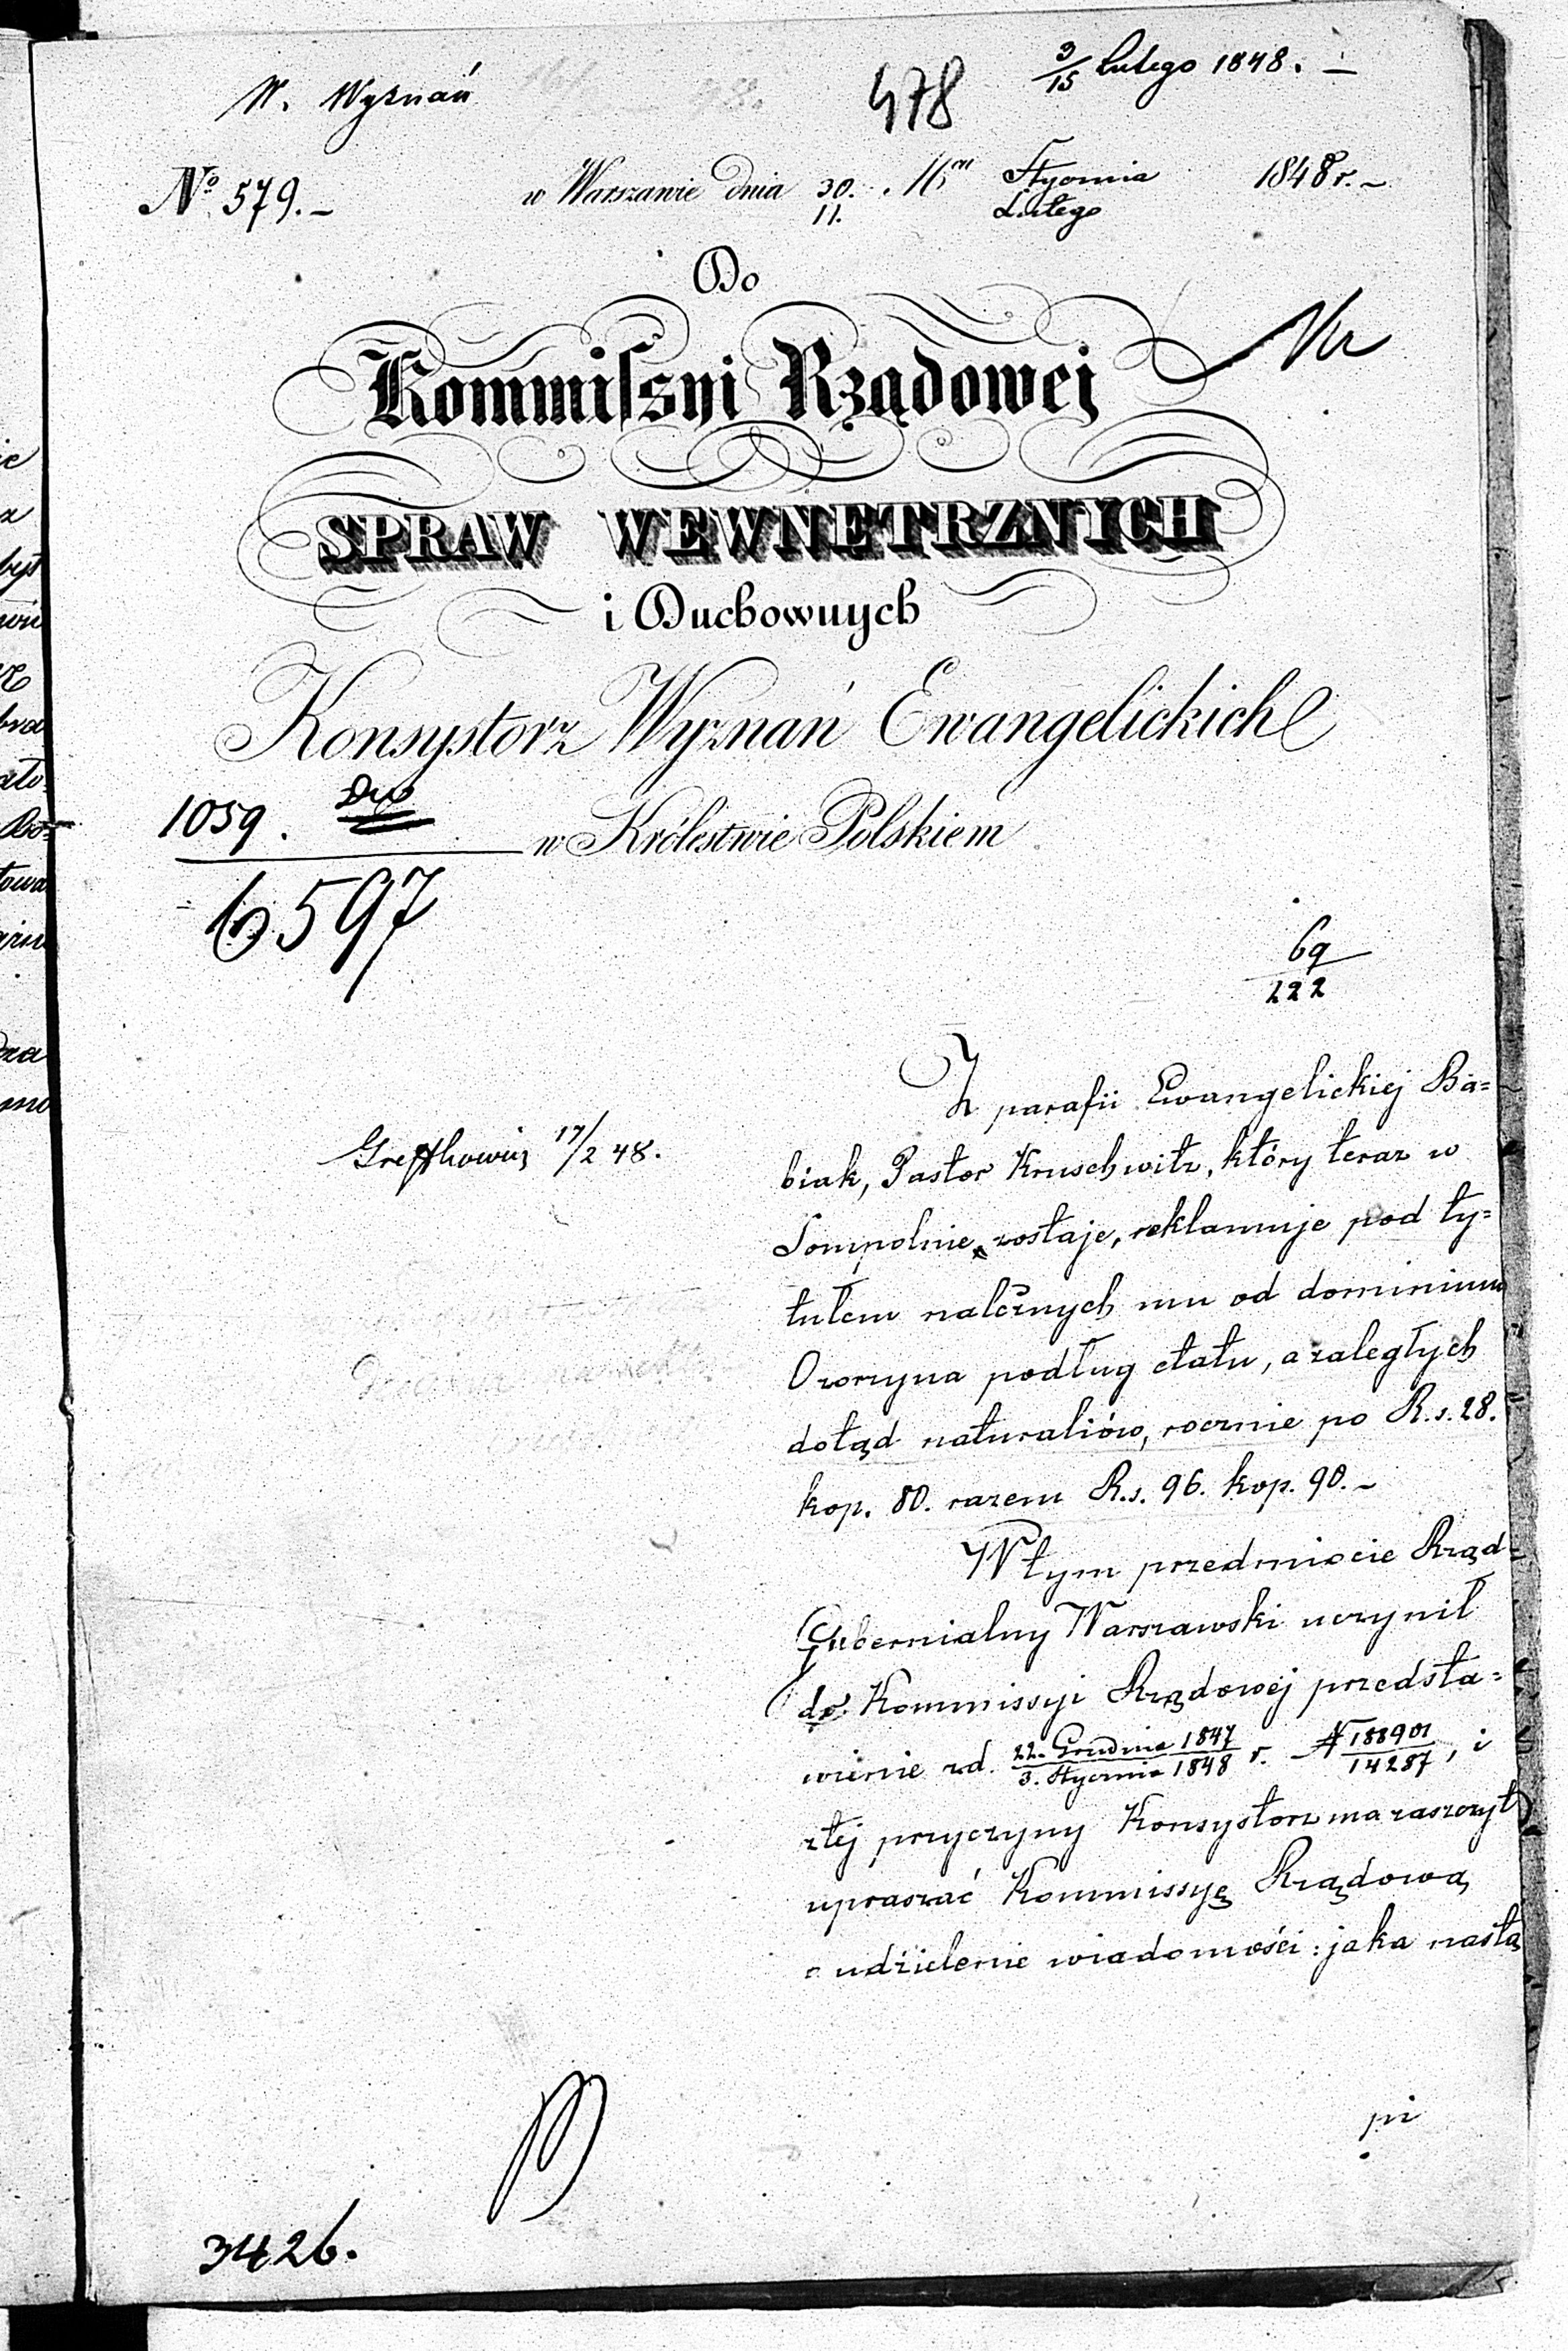 W. Wyznań
478
3/15 Lutego 1848. —
No 579. —
w Warszawie dnia 30./11. Stycznia/Lutego 1848 r. —
Do
Kommissyi Rządowej
SPRAW WEWNĘTRZNYCH
i Duchownych
Konsystorz Wyznań Ewangelickich
w Królestwie Polskiem
1059.
6597
69/222
Z parafii Ewangelickiej Ba=
17/2 48.
biak, Pastor Kruschwitz, który teraz w
Sompolnie zostaje, reklamuje pod ty=
tułem należnych mu od dominium
Ozorzyna podług etatu, a zaległych
dotąd naturaliów, rocznie po R.s. 28.
kop. 80. razem R.s. 96. kop. 90. —
W tym przedmiocie Rząd
Gubernialny Warszawski uczynił
do Kommissyi Rządowej przedsta=
wienie zd. 22. Grudnia 1847/3. Stycznia 1848 r. N 188901/14287, i
z tej przyczyny Konsystorz ma zaszczyt
upraszać Kommissyę Rządową
o udzielenie wiadomości: jaka nastą
pi
3426.